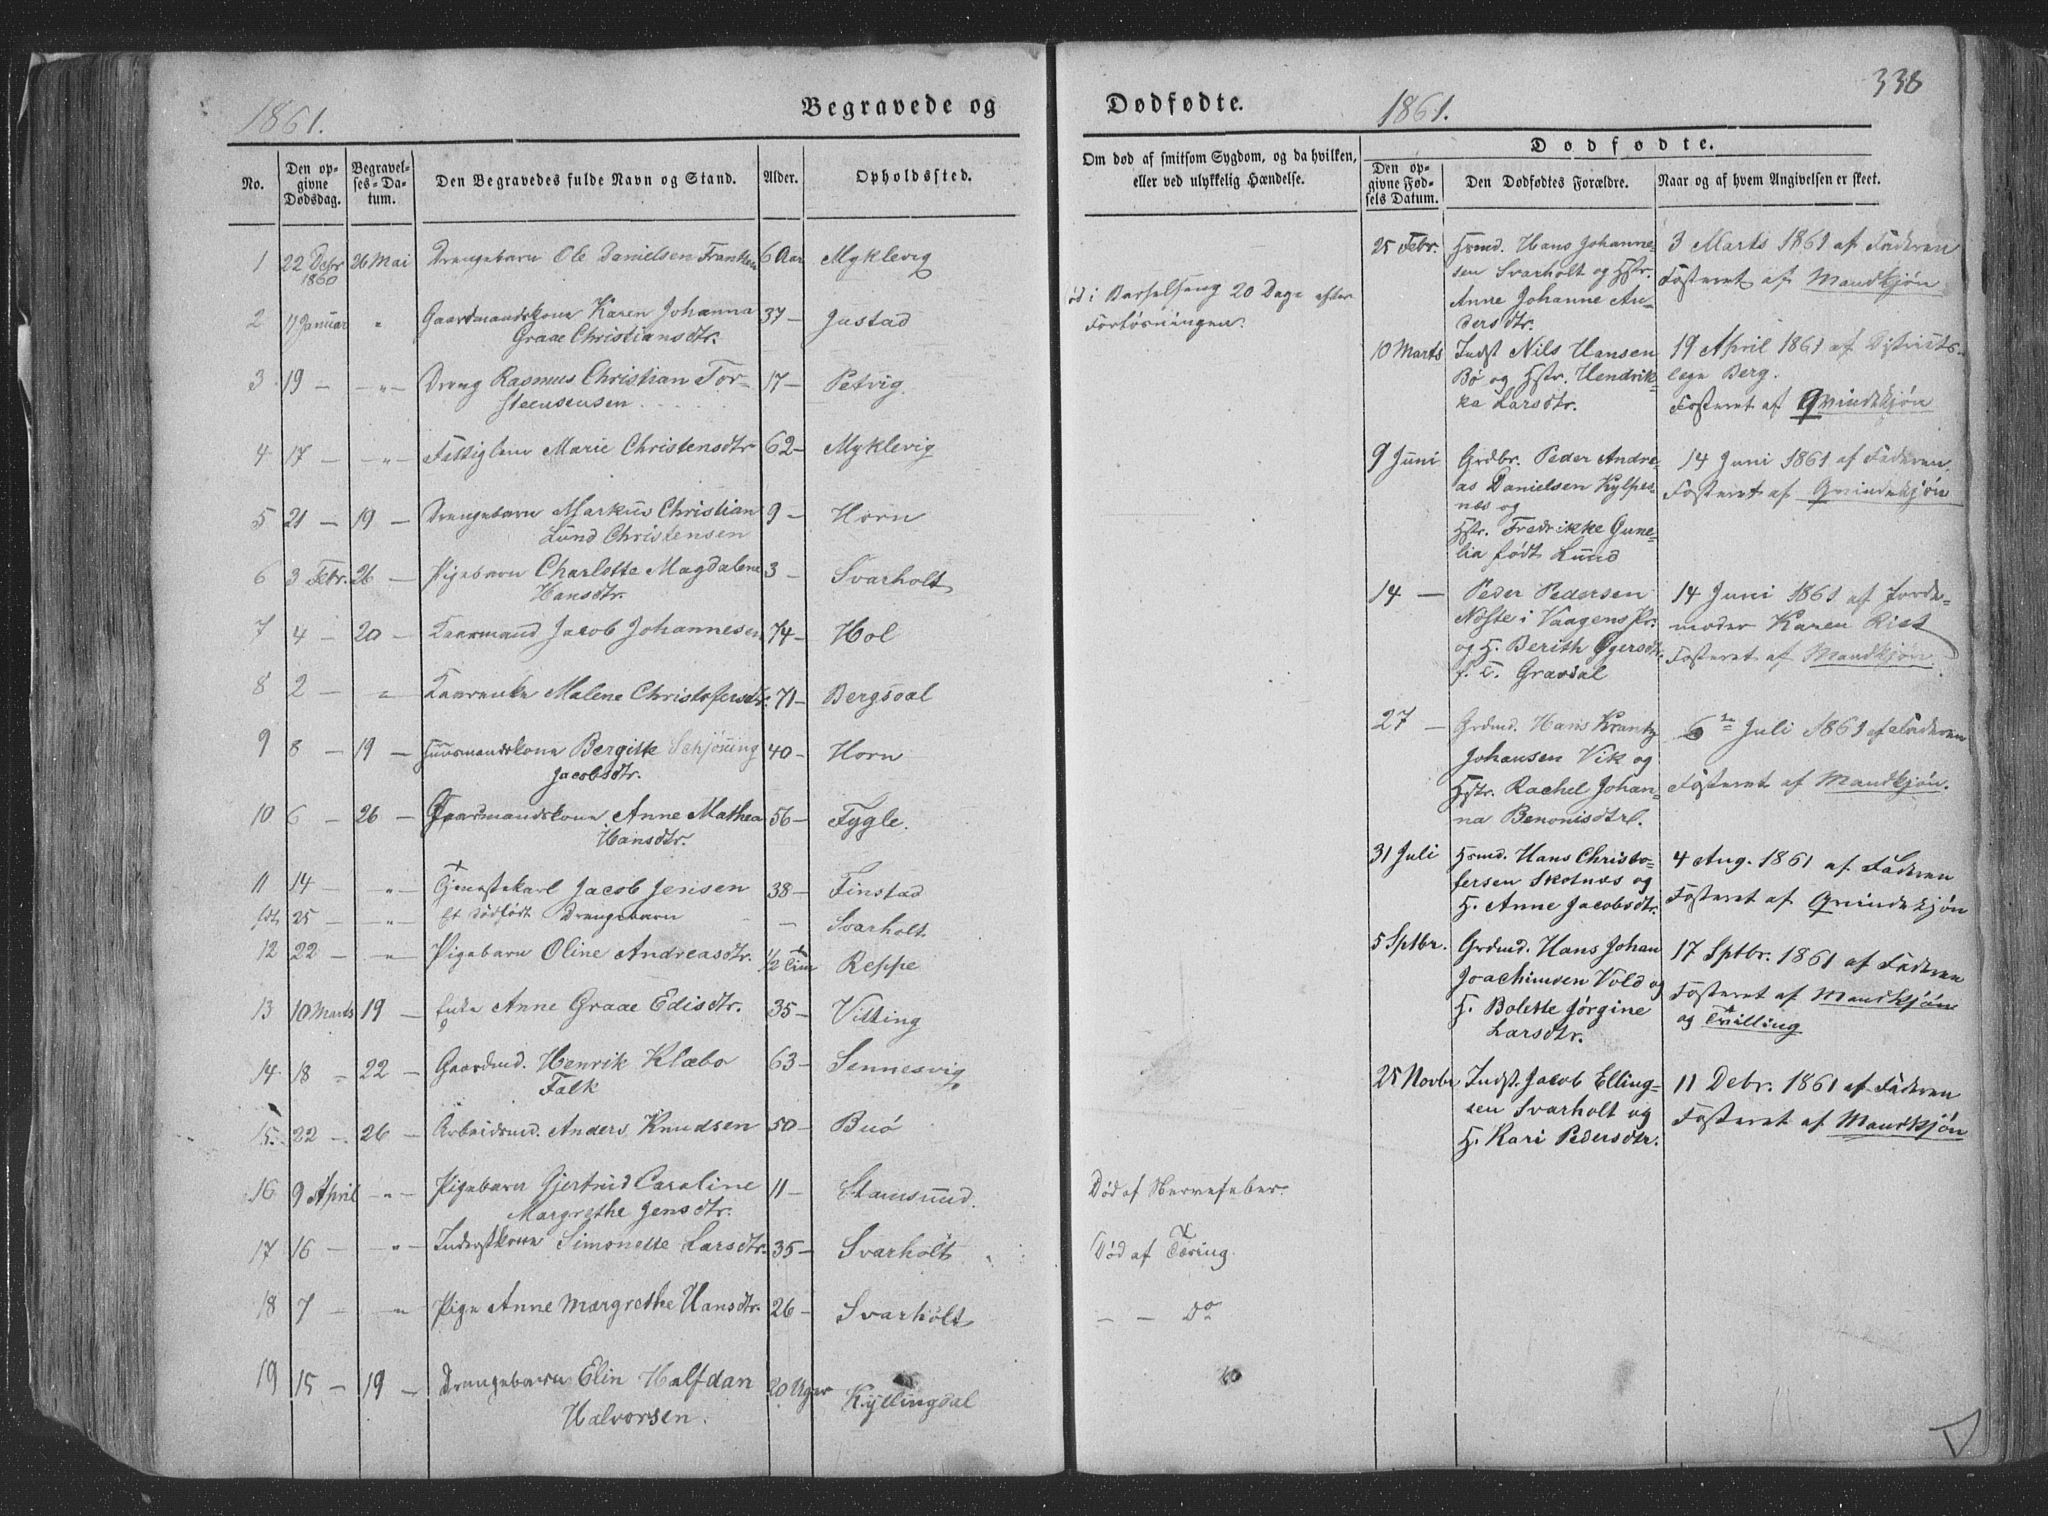 1861.
Begravede og
No.
Den opgivne Dødsdag.
Begravelses-Datum.
Den Begravedes fulde Navn og Stand.
Alder.
Opholdssted.
1 22 Debr 1860 26 Mai Drengebarn Ole Danielsen 6 Aar Myklevig
2 17 Januar " Gaardmandskone Karen Johanna 37 – Justad
Graae Christiansdtr.
3 19 – " Dreng Rasmus Christian Tor- 17 – Petvig
steensensen
4 17 – " Fattiglem Marie Christensdtr 62 – Myklevig
5 21 – 19 – Drengebarn Markus Christian 9 – Horn
Lund Christensen
6 3 Febr. 26 – Pigebarn Charlotte Magdalena 3 – Svarholt
Hansdtr.
7 4 – 20 – Kaarmand Jacob Johannesen 74 – Hol
8 2 – " Kaarenke Malene Christofersdtr. 71 – Bergsdal
9 8 – 19 – Huusmandskone Bergitte Schjøning 40 – Horn
Jacobsdtr.
10 6 – 26 – Gaarmandskone Anne Mathea 56 – Fygle.
Hansdtr.
11 14 – " Tjenestekarl Jacob Jensen 38 – Finstad
25 – " Et dødfødt Drengebarn – Svarholt
12 22 – " Pigebarn Oline Andreasdtr. 1/2 Time Reppe
13 10 Marts 19 – Enke Anne Graae Edisdtr. 35 – Vitting
14 18 – 22 – Gaardmd. Henrik Klæbo 63 – Sennesvig
Falk
15 22 – 26 – Arbeidsmd. Anders Knudsen 50 – Buø
16 9 April " Pigebarn Gjertrud Caroline 11 – Stamsund.
Margrethe Jensdtr.
17 16 – " Inderstkone Simonette Larsdtr. 35 – Svarholt
18 7 – " Pige Anne Margrethe Hansdtr. 26 – Svarholt
19 15 – 19 – Drengebarn Elin Halfdan 20 Uger Kyllingdal
Halvorsen.
338
Dødfødte.
1861.
Om død af smitsom Sygdom, og da hvilken, eller ved ulykkelig Hændelse.
Dødfødte.
Den opgivne Fødsels Datum.
Den Dødfødtes Forældre.
Naar og af hvem Angivelsen er skeet.
i Barselseng 20 Dage efter
Forløsningen.
Død af Nervefeber.
Død af Tæring.
– – Do
25 Febr. Hsmd. Hans Johanne- 3 Marts 1861 af Faderen
sen Svarholt og Hstr. Fosteret af Mandkjøn
Anne Johanne An-
dersdtr.
10 Marts Indst Nils Hansen 19 April 1861 af Distrikts-
Bø og Hstr. Hendrik- læge Berg.
ka Larsdtr. Fosteret af Qvindekjøn
9 Juni Grdbr. Peder Andre- 14 Juni 1861 af Faderen.
as Danielsen Kylpes- Fosteret af Qvindekjøn
næs og
Hstr. Fredrikke Gune-
lia født Lund
14 – Peder Pedersen 14 Juni 1861 af Jorde-
Nøste i Vaagens Pr. moder Karen Rist
og H. Berith Ogersdtr. Fosteret af Mandkjøn.
p. t. Gravdal
27 – Grdmd. Hans Krantz 6te Juli 1861 af Faderen
Johansen Vik og
Hstr. Rachel Johan- Fosteret af Mandkjøn.
na Benonisdtr.
31 Juli Hsmd. Hans Christo- 4 Aug. 1861 af Faderen
fersen Skotnæs og
H. Anne Jacobsdtr. Fosteret af Qvindekjøn
5 Sptbr. Grdmd. Hans Johan 17 Sptbr. 1861 af Faderen
Joachimsen Vold og Fosteret af Mandkjøn
H. Bolette Jørgine og Tvilling
Larsdtr.
25 Novbr Indst. Jacob Elling- 11 Debr. 1861 af Faderen
sen Svarholt og Fosteret af Mandkjøn
H. Kari Pedersdtr.